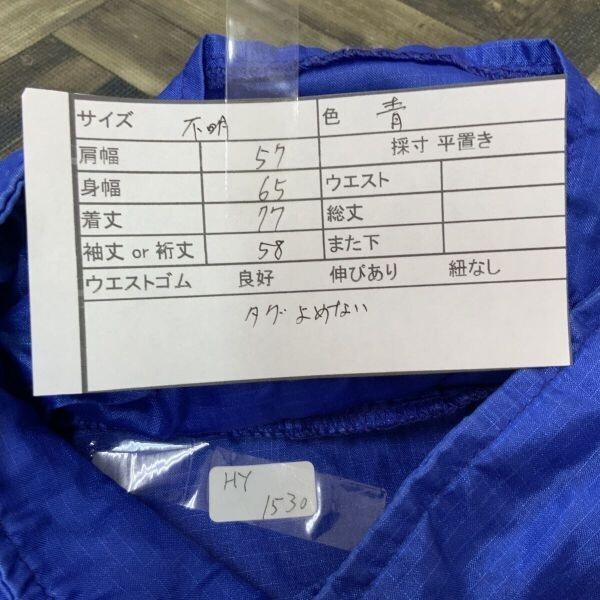 サイズ 不明 色 青
肩幅 57 採寸 平置き
身幅 65 ウエスト
着丈 77 総丈
袖丈 or 裄丈 58 また下
ウエストゴム 良好 伸びあり 紐なし
タグよめない
HY
1530